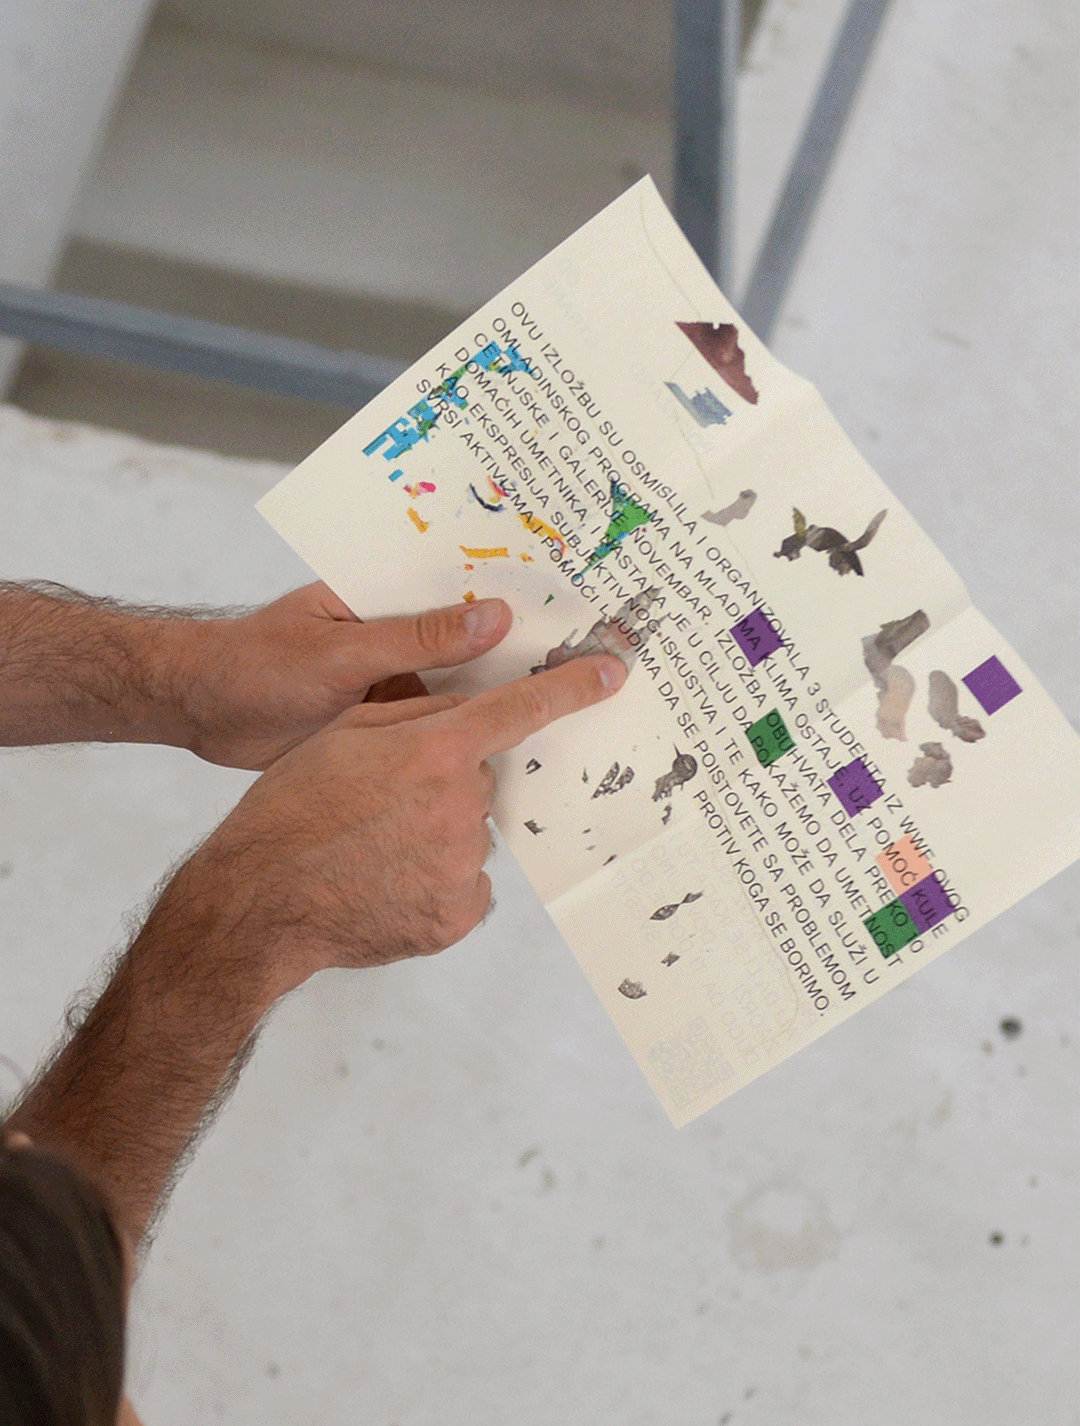 OVU IZLOŽBU SU OSMISLILA I ORGANIZOVALA 3 STUDENTA IZ WWF-OVOG
OMLADINSKOG PROGRAMA NA MLADIMA KLIMA OSTAJE, UZ POMOĆ KULE
CETINJSKE I GALERIJE NOVEMBAR. IZLOŽBA OBUHVATA DELA PREKO 10
DOMAĆIH UMETNIKA, I NASTALA JE U CILJU DA POKAŽEMO DA UMETNOST
KAO EKSPRESIJA SUBJEKTIVNOG ISKUSTVA I TE KAKO MOŽE DA SLUŽI U
SVRSI AKTIVIZMA I POMOĆI LJUDIMA DA SE POISTOVETE SA PROBLEMOM
PROTIV KOGA SE BORIMO.